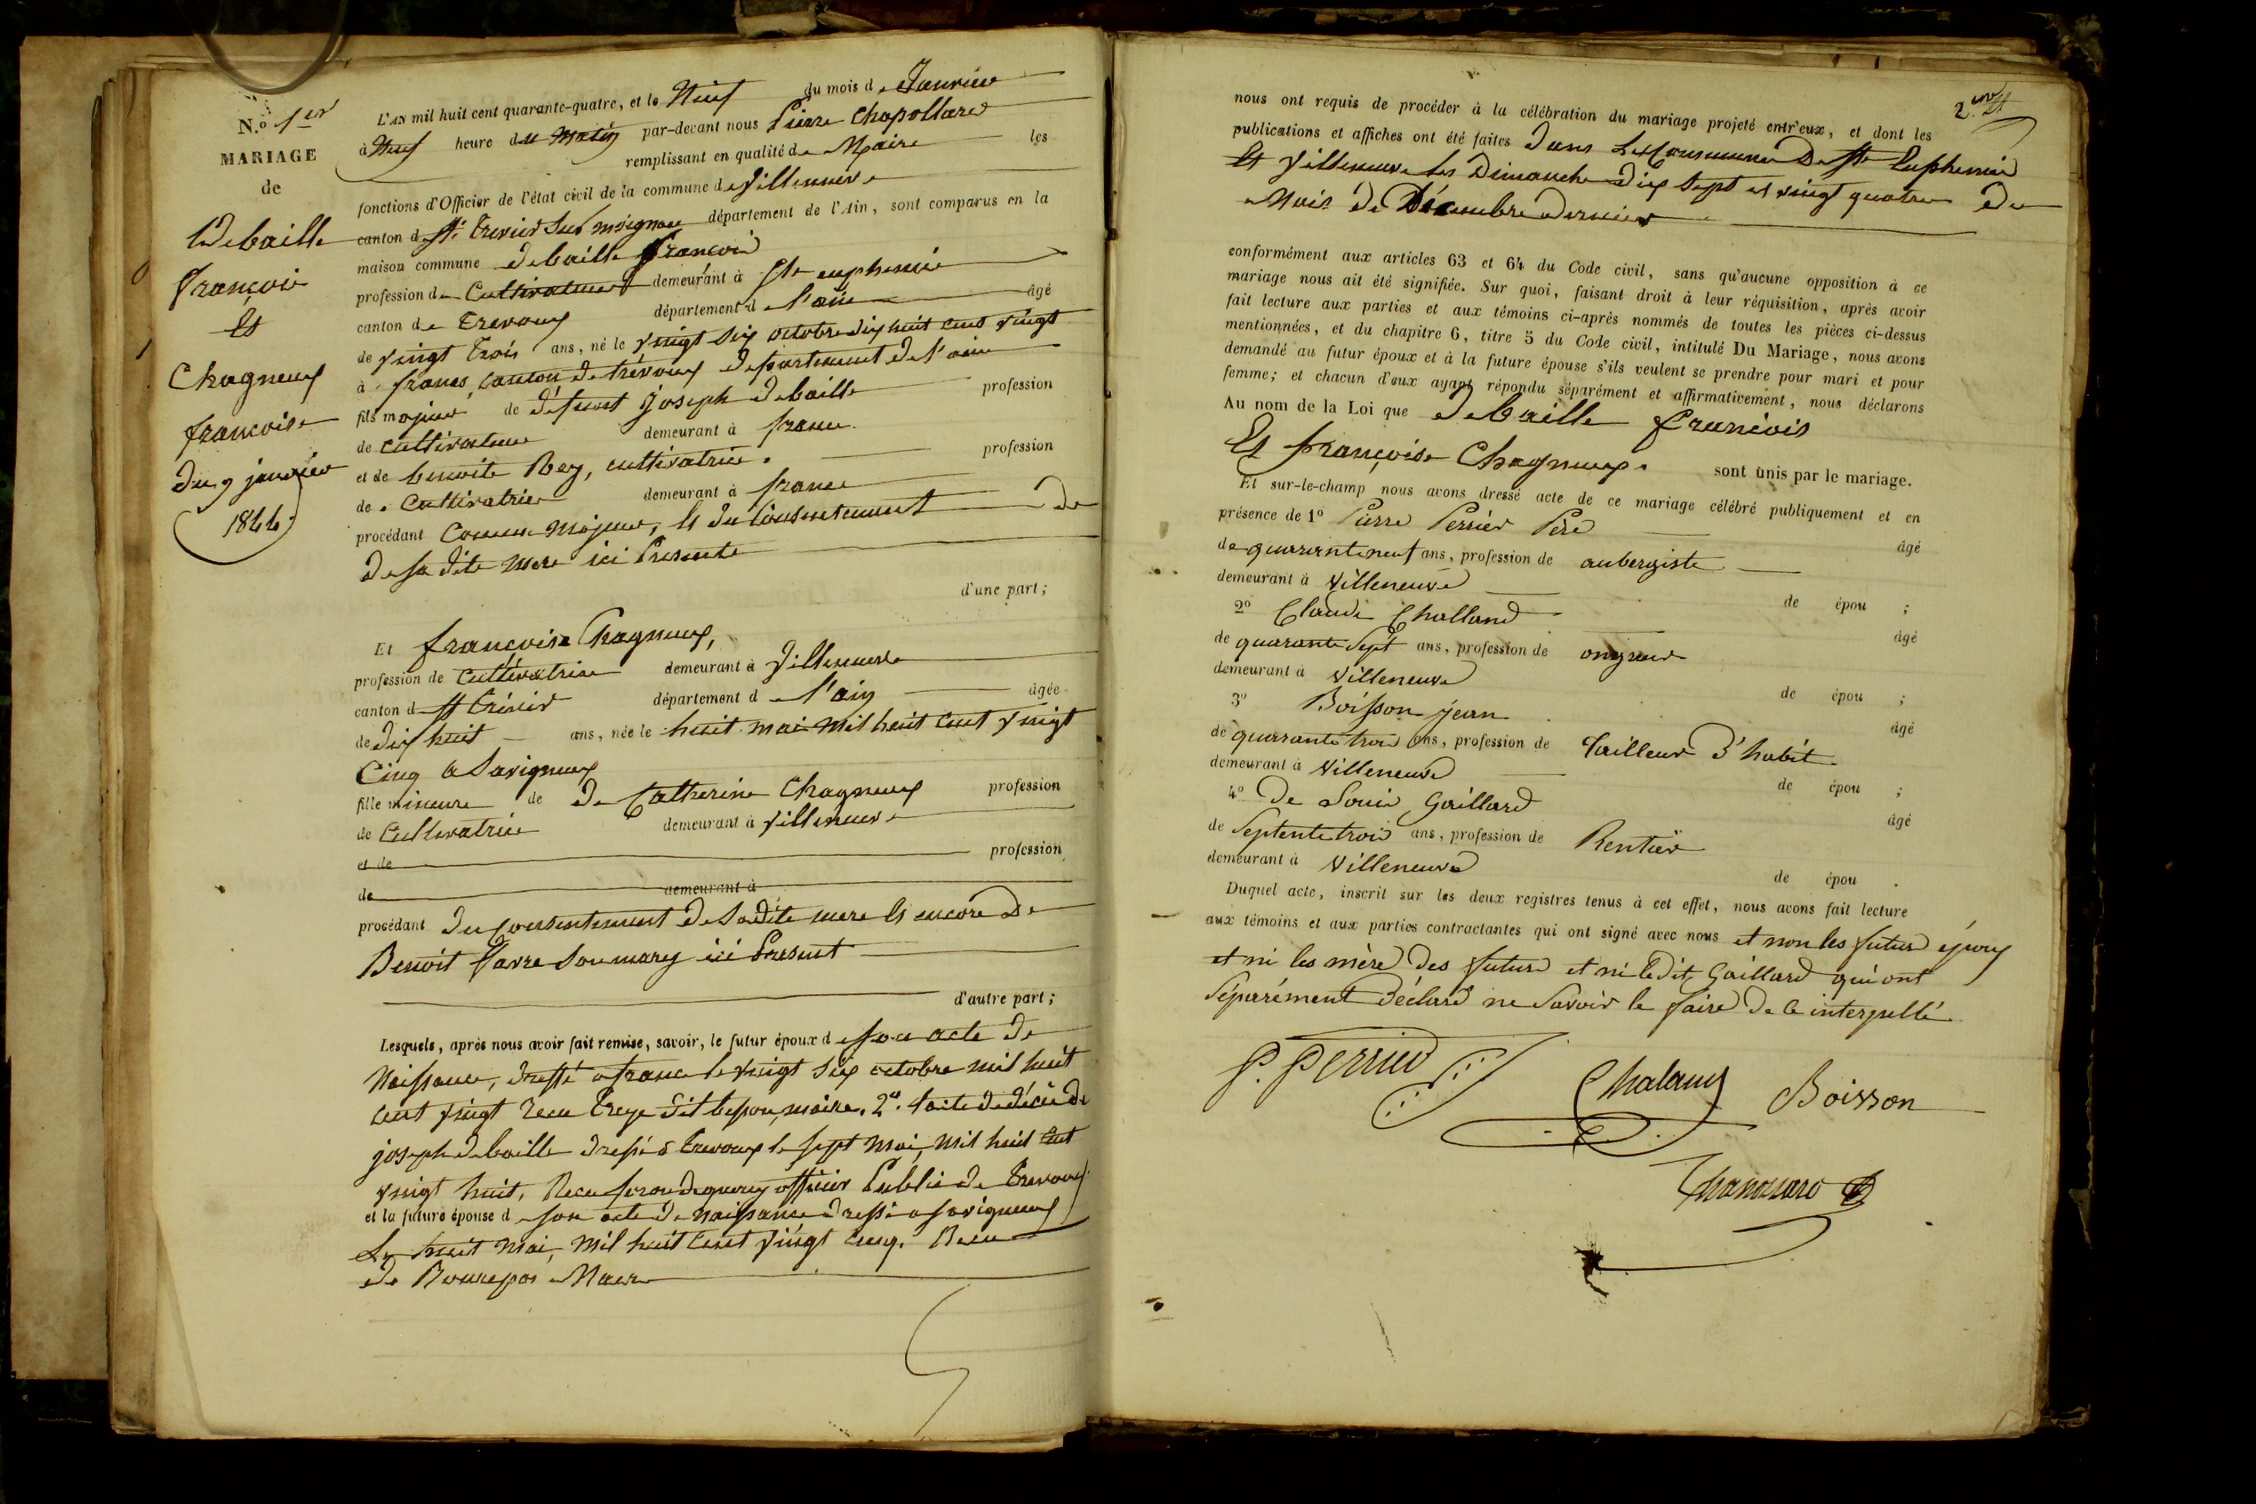 N.o 1er
MARIAGE
de
Debaille
françois
Et
Chagneux
francoise
du 9 janvier
1844.
L'AN mil huit cent quarante-quatre, et le Neuf du mois de Janvier
à Neuf heure du Matin par-devant nous Pierre Chapollard
remplissant en qualité de Maire les
fonctions d'Officier de l'état civil de la commune de Villeneuve
canton de St Trevier Sur moignan département de l'Ain, sont comparus en la
maison commune Debaille françois
profession de Cultivateur demeurant à Ste euphemie
canton de Trevoux département de l'ain âgé
de vingt Trois ans, né le vingt Six octobre dix huit cent vingt
à frans, canton de trévoux département de l'ain
fils majeur de défunt joseph Debaille profession
de cultivateur demeurant à frans
et de benoite Rey, cultivatrice. profession
de cultivatrice demeurant à frans
procédant comme majeur, et du consentement de
de sa dite mere ici Presente
d'une part;
Et françoise Chagneux,
profession de cultivatrice demeurant à Villeneuve
canton de St Trivier département de l'ain âgée
de dix huit ans, née le huit mai mil huit cent vingt
Cinq à Savigneux
fille mineure de de Catherine Chagneux profession
de cultivatrice demeurant à Villeneuve
et de profession
de demeurant à
procédant du consentement de sadite mere et encore de
Benoit favre Son mary ici Present
d'autre part;
Lesquels, après nous avoir fait remise, savoir, le futur époux de son acte de
Naissance, dressé à frans le vingt Six octobre mil huit
cent vingt recu Treye dit maire, 2o. l'acte de décès de
joseph debaille dressé à Trevoux le sept mai, mil huit cent
vingt huit, Recu officier Public de Trevoux
et la future épouse de son acte de naissance dressé à savigneux
Le huit mai, mil huit cent vingt cinq. Recu
de Maire
2
nous ont requis de procéder à la célébration du mariage projeté entr'eux, et dont les
publications et affiches ont été faites dans les Communes De Ste Euphemie
Et Villeneuve les Dimanche dix Sept et vingt quatre du
Mois de Décembre dernier
conformément aux articles 63 et 64 du Code civil, sans qu'aucune opposition à ce
mariage nous ait été signifiée. Sur quoi, faisant droit à leur réquisition, après avoir
fait lecture aux parties et aux témoins ci-après nommés de toutes les pièces ci-dessus
mentionnées, et du chapitre 6, titre 5 du Code civil, intitulé Du Mariage, nous avons
demandé au futur époux et à la future épouse s'ils veulent se prendre pour mari et pour
femme; et chacun d'eux ayant répondu séparément et affirmativement, nous déclarons
Au nom de la Loi que debaille francois
Et françoise Chagneux. sont unis par le mariage.
Et sur-le-champ nous avons dressé acte de ce mariage célébré publiquement et en
présence de 1o Pierre Perrier Père âgé
de quarante neuf ans, profession de aubergiste
demeurant à Villeneuve de épou ;
2o Claude Challand âgé
de quarante Sept ans, profession de
demeurant à Villeneuve de épou ;
3o Boisson jean âgé
de quarante trois ans, profession de Tailleur d'habit
demeurant à Villeneuve de épou ;
4o De Louis Gaillard âgé
de Septente trois ans, profession de Rentier
demeurant à Villeneuve de épou .
Duquel acte, inscrit sur les deux registres tenus à cet effet, nous avons fait lecture
aux témoins et aux parties contractantes qui ont signé avec nous et non les futur époux
et ni les mère des futurs et ni ledit Gaillard qui ont
séparément déclaré ne savoir le faire de ce interpellé
P. Perrier
Chaland Boisson